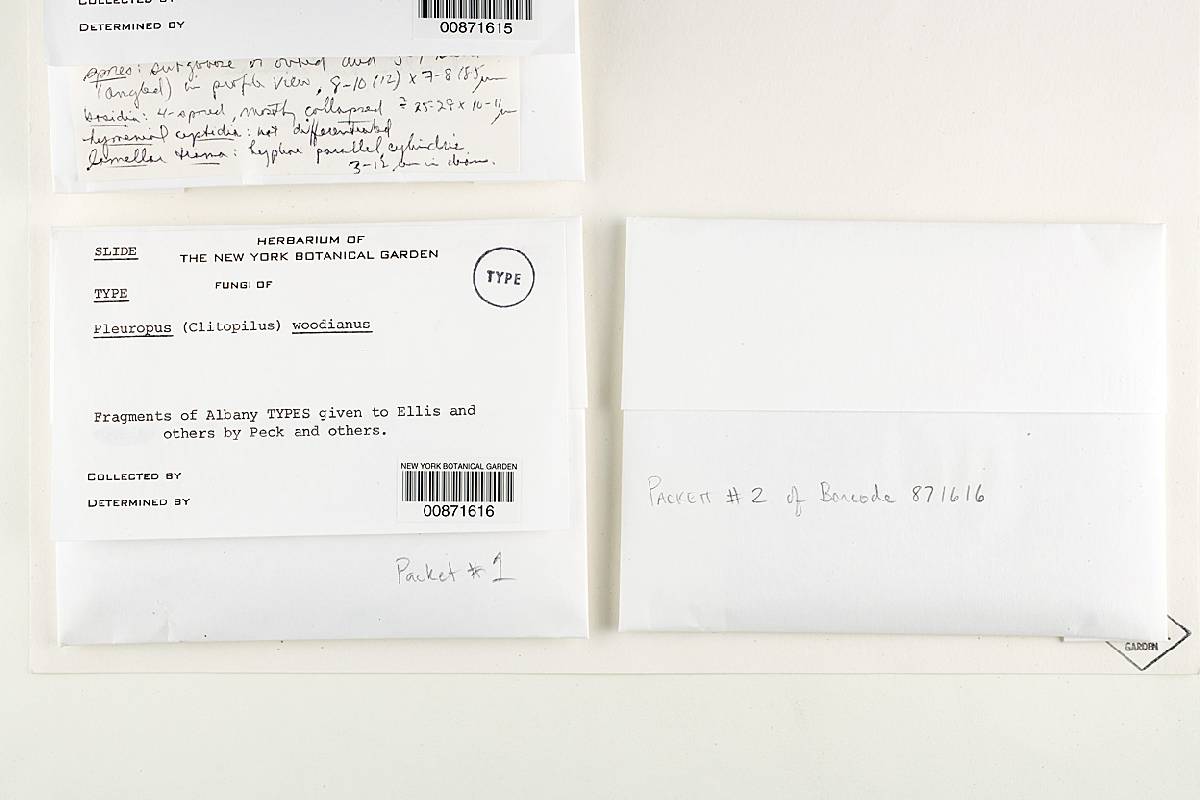 COLLECTED BY
DETERMINED BY
00871615
spores: subglobose or ovoid and
(angled) in profile view, 8-10 (12) x 7-8 (8.5 µm
basidia: 4-spored, mostly collapsed ± 25-29 x 10-11 µm
hymenial cystidia: not differentiated
lamellar trama: hyphae parallel, cylindric,
3-12 µm in diam.
SLIDE
HERBARIUM OF
THE NEW YORK BOTANICAL GARDEN
TYPE
TYPE
FUNGI OF
Pleuropus (Clitopilus) woodianus
Fragments of Albany TYPES given to Ellis and
others by Peck and others.
COLLECTED BY
DETERMINED BY
NEW YORK BOTANICAL GARDEN
00871616
Packet # 1
PACKET # 2 of Barcode 871616
GARDEN